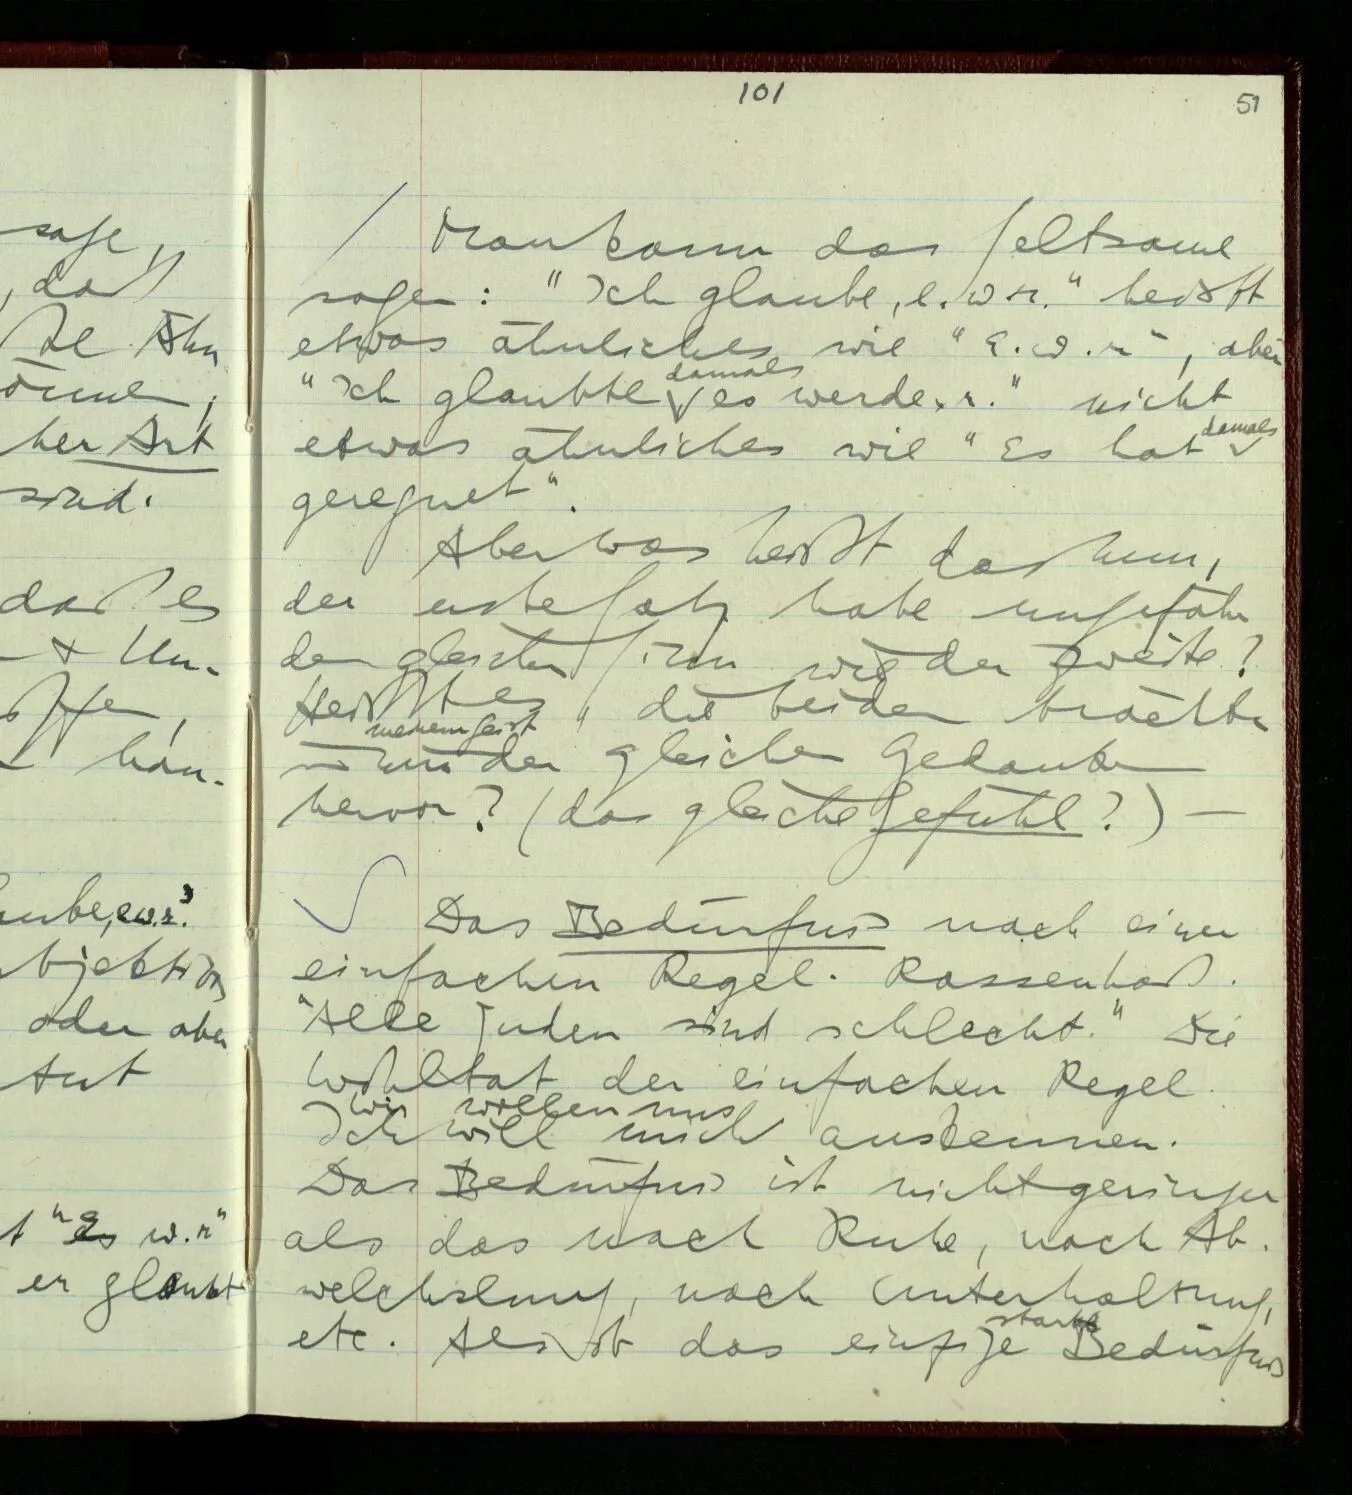 101
51
/ Man kann das seltsame
sagen: "Ich glaube, e.w.r." heisst
etwas ähnliches wie "E.w.r.", aber
"Ich glaubte damals es werde r." nicht
etwas ähnliches wie "Es hat damals
geregnet".
Aber was heißt das nun,
der erste Satz habe ungefähr
den gleichen Sinn wie der zweite?
Heißt es, die beiden brächten
meinem Geist
in mir den gleichen Gedanken
hervor? (das gleiche Gefühl?) —
Das Bedürfnis nach einer
einfachen Regel. Rassenhaß.
"Alle Juden sind schlecht." Die
Wohltat der einfachen Regel.
Wir wollen uns
Ich will mich auskennen.
Das Bedürfnis ist nicht geringer
als das nach Ruhe, nach Ab-
wechslung, nach Unterhaltung,
etc. Als ob das einzige starke Bedürfnis
sage,
, daß
Ähn
her Art
sind.
daß es
+ Un-
hän-
aube, e.w.r."
bjektiv
oder aber
Art
t "Es w.r"
er glaubt